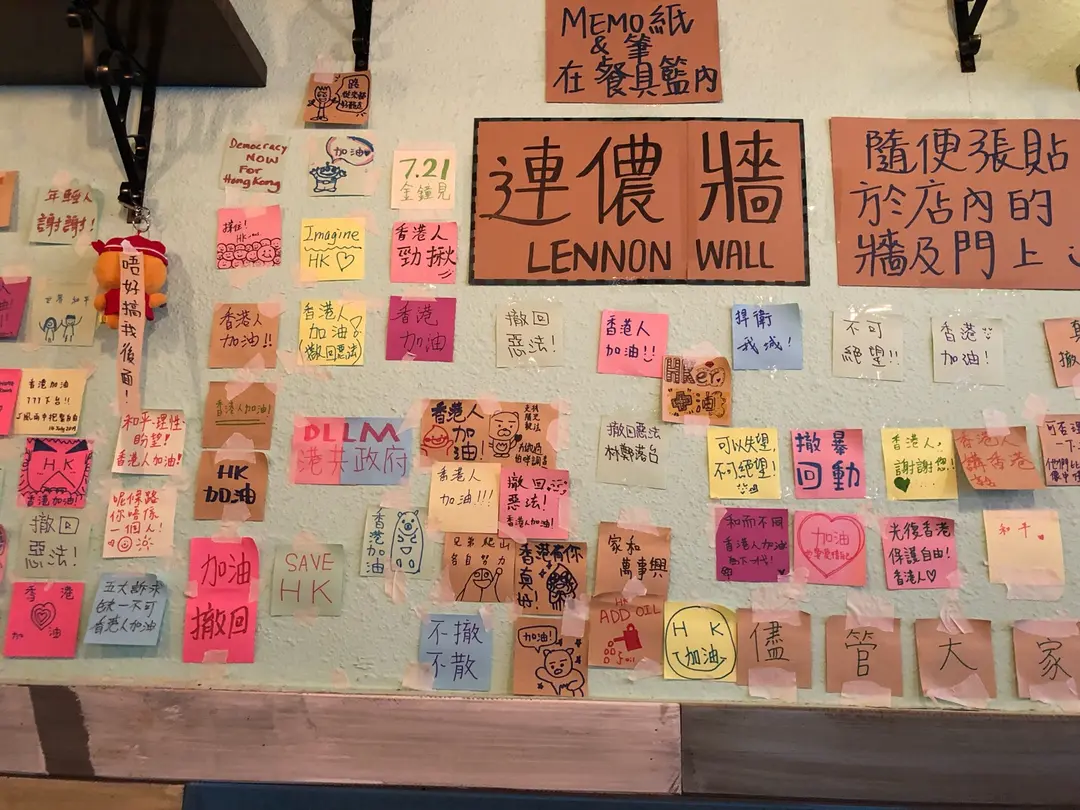 MEMO紙
&筆
在餐具籃內
連儂牆
LENNON WALL
隨便張貼
於店內的
牆及門上
Democracy
NOW
For
HongKong
加油
7.21
金鐘見
年輕人
謝謝!
唔好搞我後面!
撐住!
HK
Imagine
HK♡
香港人
勁揪
世界和平
香港人
加油!!
香港人
加油!
撤回惡法
香港
加油
撤回
惡法!
香港人
加油!!
捍衛
我城!
不可
絕望!!
香港
加油!
香港加油
777下台!!
14 July 2019
和平理性
盼望!
香港人加油!
香港人加油!
DLLM
港共政府
香港人
加油
HKer
加油
撤回惡法
林鄭落台
可以失望,
不可絕望!
撤暴
回動
香港人,
謝謝您!
香港人
講香港
HK
香港加油!
呢條路
你唔係
一個人!
HK
加油
香港人
加油!!!
撤回
惡法!
香港人加油!
撤回
惡法!
加油
撤回
SAVE
HK
香港加油
兄弟爬山
各自努力
香港有你
真好!
家和
萬事興
和而不同
香港人加油
加油
光復香港
保護自由!
香港人♡
和平
香港
加油
五大訴求
缺一不可
香港人加油
不撤
不散
加油!
HK
ADD OIL
HK
加油
儘
管
大
家